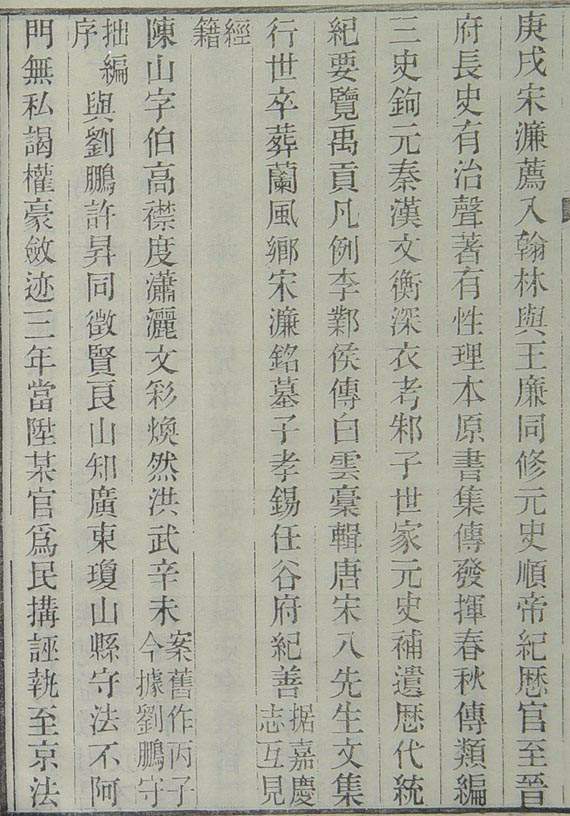 庚戌宋濂薦入翰林與王廉同修元史順帝紀厯官至晉
府長史有治聲著有性理本原書集傳發揮春秋傳類編
三史鉤元秦漢文衡深衣考邾子世家元史補遺厯代統
紀要覽禹貢凡例李鄴侯傳白雲稾輯唐宋八先生文集
行世卒葬蘭風鄉宋濂銘墓子孝錫任谷府紀善据嘉慶志互見
經籍
陳山字伯高襟度瀟灑文彩煥然洪武辛未案舊作丙子今據劉鵬守
拙編序與劉鵬許昇同徵賢良山知廣東瓊山縣守法不阿
門無私謁權豪斂迹三年當陞某官爲民搆誣執至京法